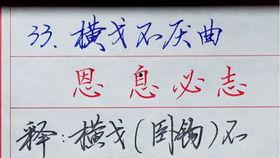 33. 横戈不厌曲
恩息必志
释:横戈(卧钩)不